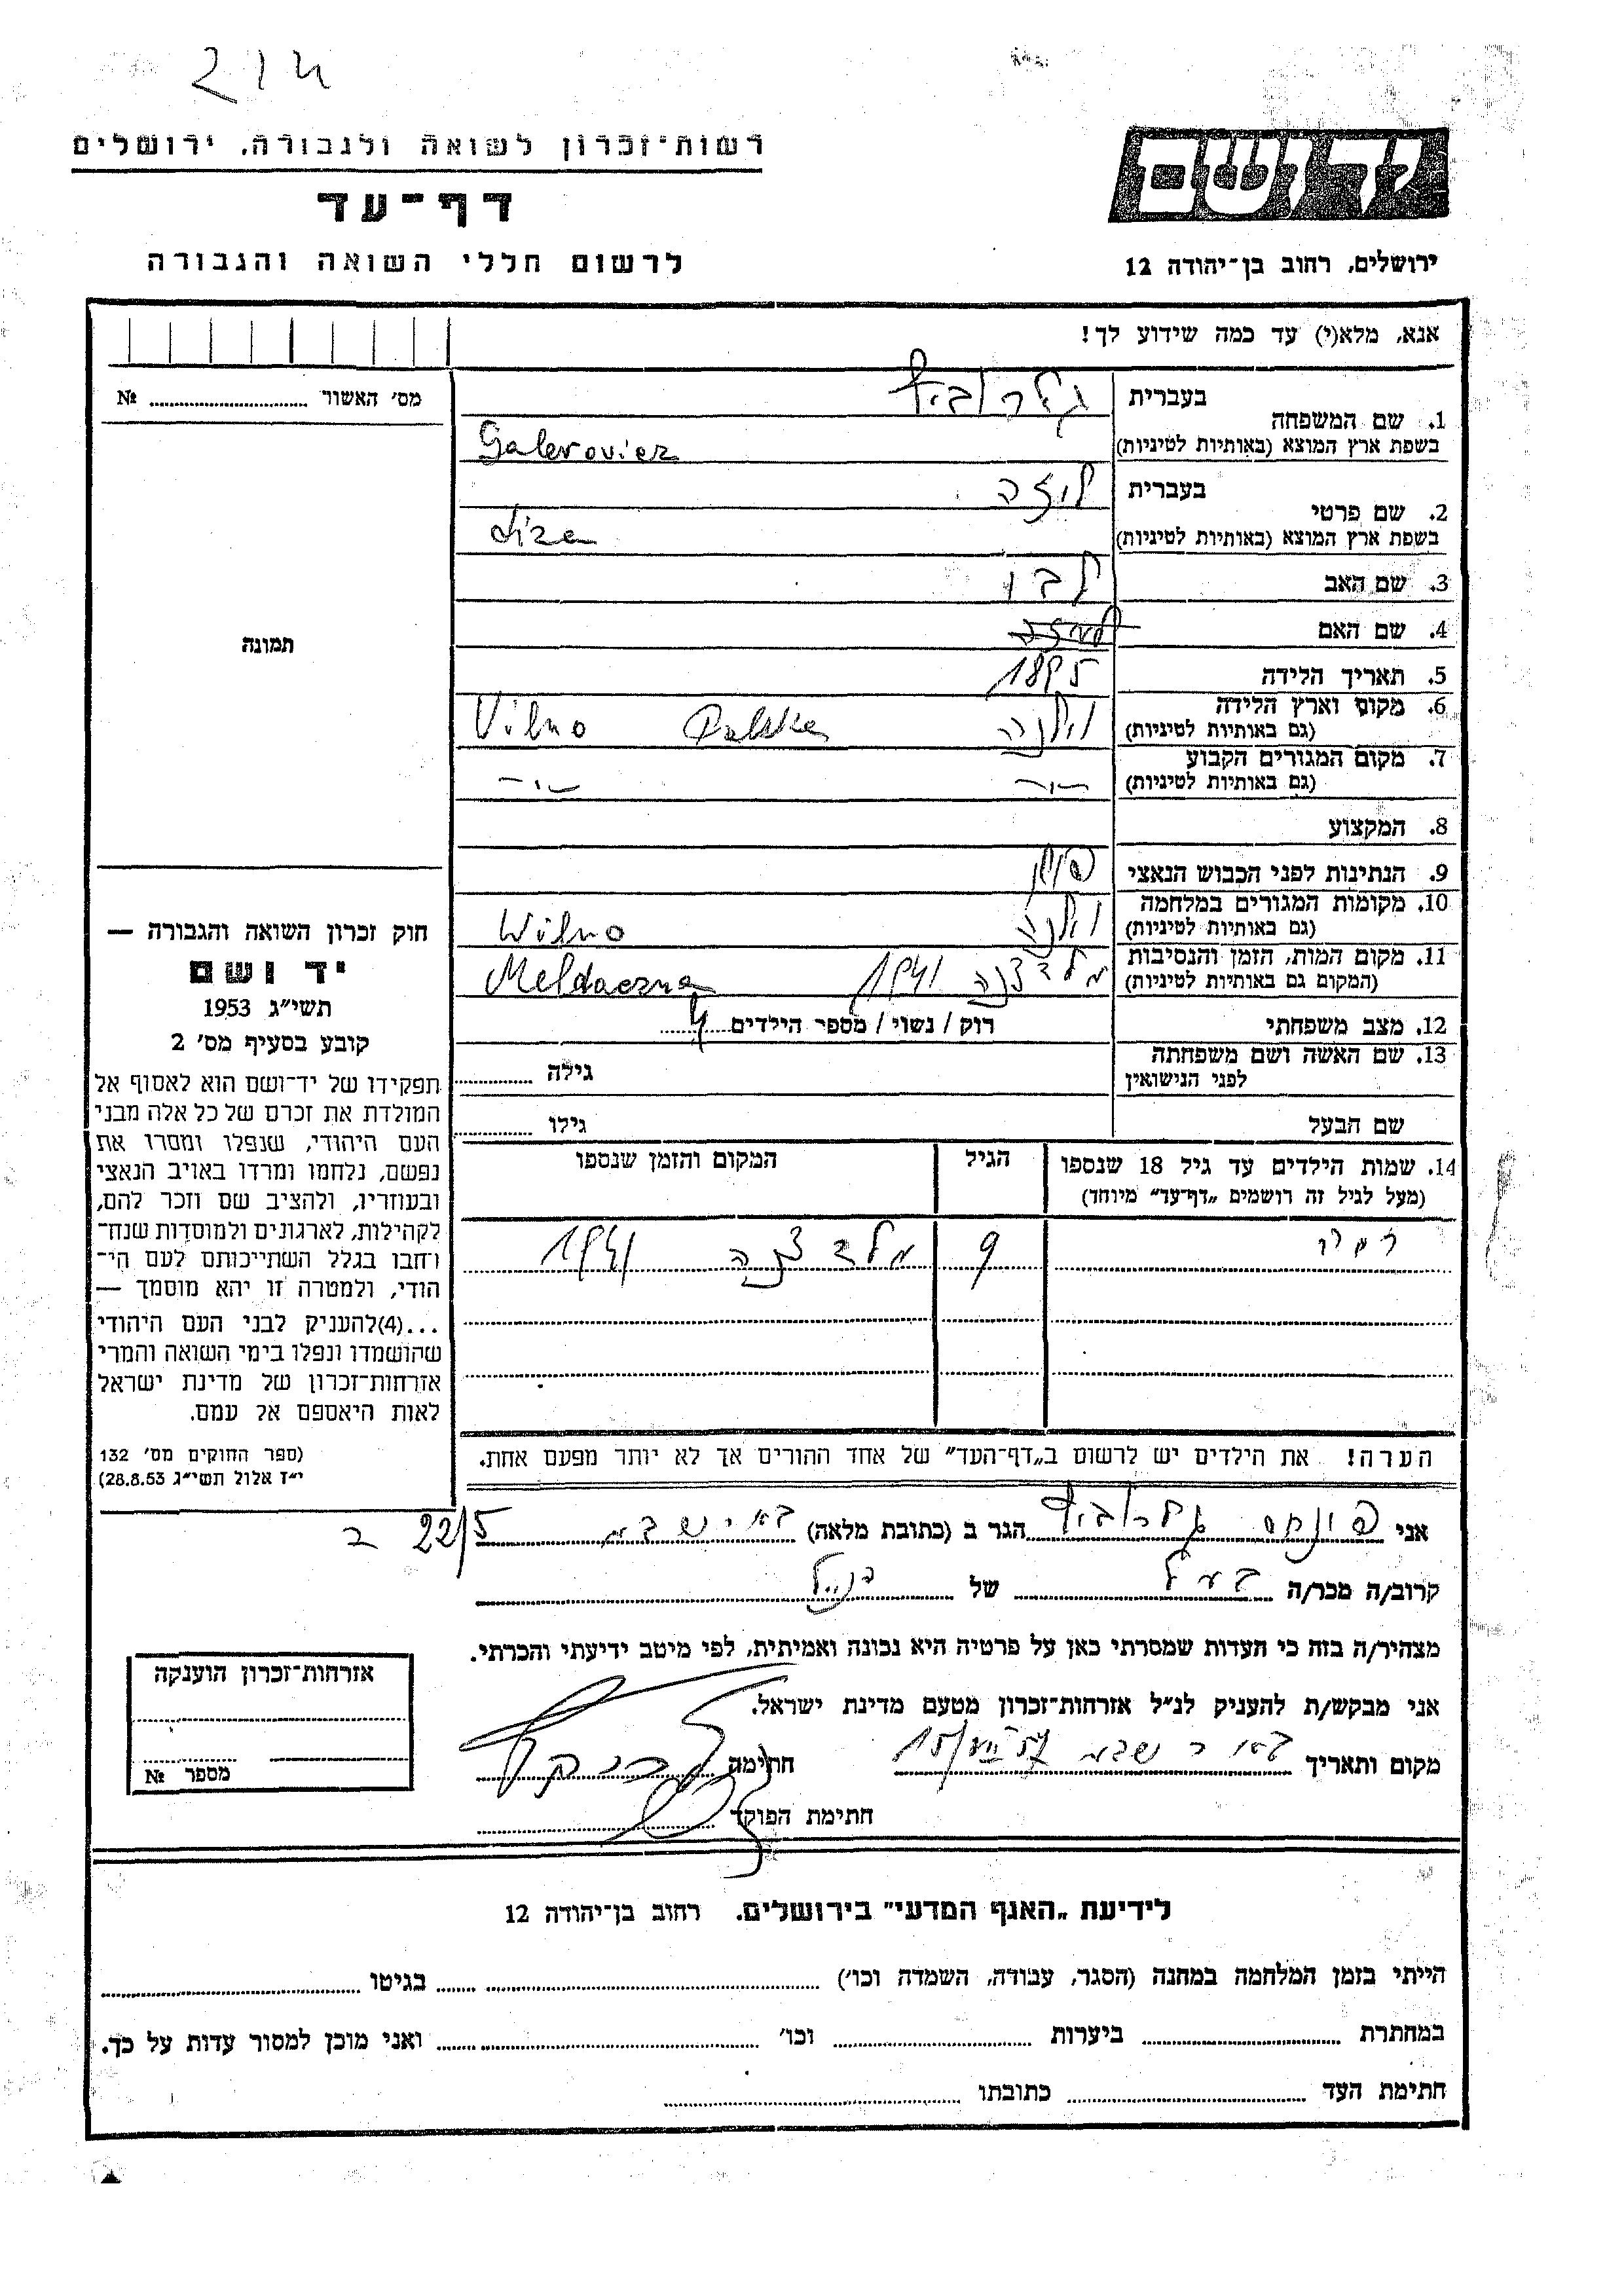 רשות־זכרון לשואה ולגבורה, ירושלים
דף־עד
לרשום חללי השואה והגבורה
יד ושם
ירושלים, רחוב בן־יהודה 12
אנא, מלא(י) עד כמה שידוע לך!
מס' האשור № 
תמונה
1. שם המשפחה
בעברית
בשפת ארץ המוצא (באותיות לטיניות) Galerovicz
2. שם פרטי
בעברית ליזה
בשפת ארץ המוצא (באותיות לטיניות) Liza
3. שם האב
4. שם האם
5. תאריך הלידה 1895
6. מקום וארץ הלידה וילנה Polska Vilno
(גם באותיות לטיניות)
7. מקום המגורים הקבוע
(גם באותיות לטיניות)
8. המקצוע
9. הנתינות לפני הכבוש הנאצי פולין
10. מקומות המגורים במלחמה וילנה Wilno
(גם באותיות לטיניות)
11. מקום המות, הזמן והנסיבות 1941
(המקום גם באותיות לטיניות)
12. מצב משפחתי רוק / נשוי / מספר הילדים 4
13. שם האשה ושם משפחתה גילה
לפני הנישואין
שם הבעל גילו
14. שמות הילדים עד גיל 18 שנספו הגיל המקום והזמן שנספו
(מעל לגיל זה רושמים „דף־עד” מיוחד)
9 1941
הערה! את הילדים יש לרשום ב„דף־העד” של אחד ההורים אך לא יותר מפעם אחת.
חוק זכרון השואה והגבורה —
יד ושם
תשי"ג 1953
קובע בסעיף מס' 2
תפקידו של יד־ושם הוא לאסוף אל
המולדת את זכרם של כל אלה מבני
העם היהודי, שנפלו ומסרו את
נפשם, נלחמו ומרדו באויב הנאצי
ובעוזריו, ולהציב שם וזכר להם,
לקהילות, לארגונים ולמוסדות שנח־
רחבו בגלל השתייכותם לעם הי־
הודי, ולמטרה זו יהא מוסמך —
...(4)להעניק לבני העם היהודי
שהושמדו ונפלו בימי השואה והמרי
אזרחות־זכרון של מדינת ישראל
לאות היאספם אל עמם.
(ספר החוקים מס' 132
י"ז אלול תשי"ג 28.8.53)
אני פנחס הגר ב (כתובת מלאה) 22/5 ב
קרוב/ה מכר/ה בעל של
מצהיר/ה בזה כי העדות שמסרתי כאן על פרטיה היא נכונה ואמיתית, לפי מיטב ידיעתי והכרתי.
אני מבקש/ת להעניק לנ"ל אזרחות־זכרון מטעם מדינת ישראל.
מקום ותאריך באר שבע חתימה
חתימת הפוקד
אזרחות־זכרון הוענקה
מספר №
לידיעת „האגף המדעי” בירושלים. רחוב בן־יהודה 12
הייתי בזמן המלחמה במחנה (הסגר, עבודה, השמדה וכו') בגיטו
במחתרת ביערות וכו' ואני מוכן למסור עדות על כך.
חתימת העד כתובתו